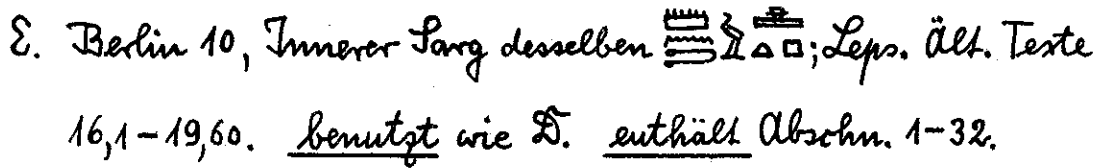 E. Berlin 10, Innerer Sarg desselben 𓏠𓈖𓍿𓅱𓊵𓏏𓊪; Leps. Ält. Texte
16,1–19,60. benutzt wie D. enthält Abschn. 1–32.